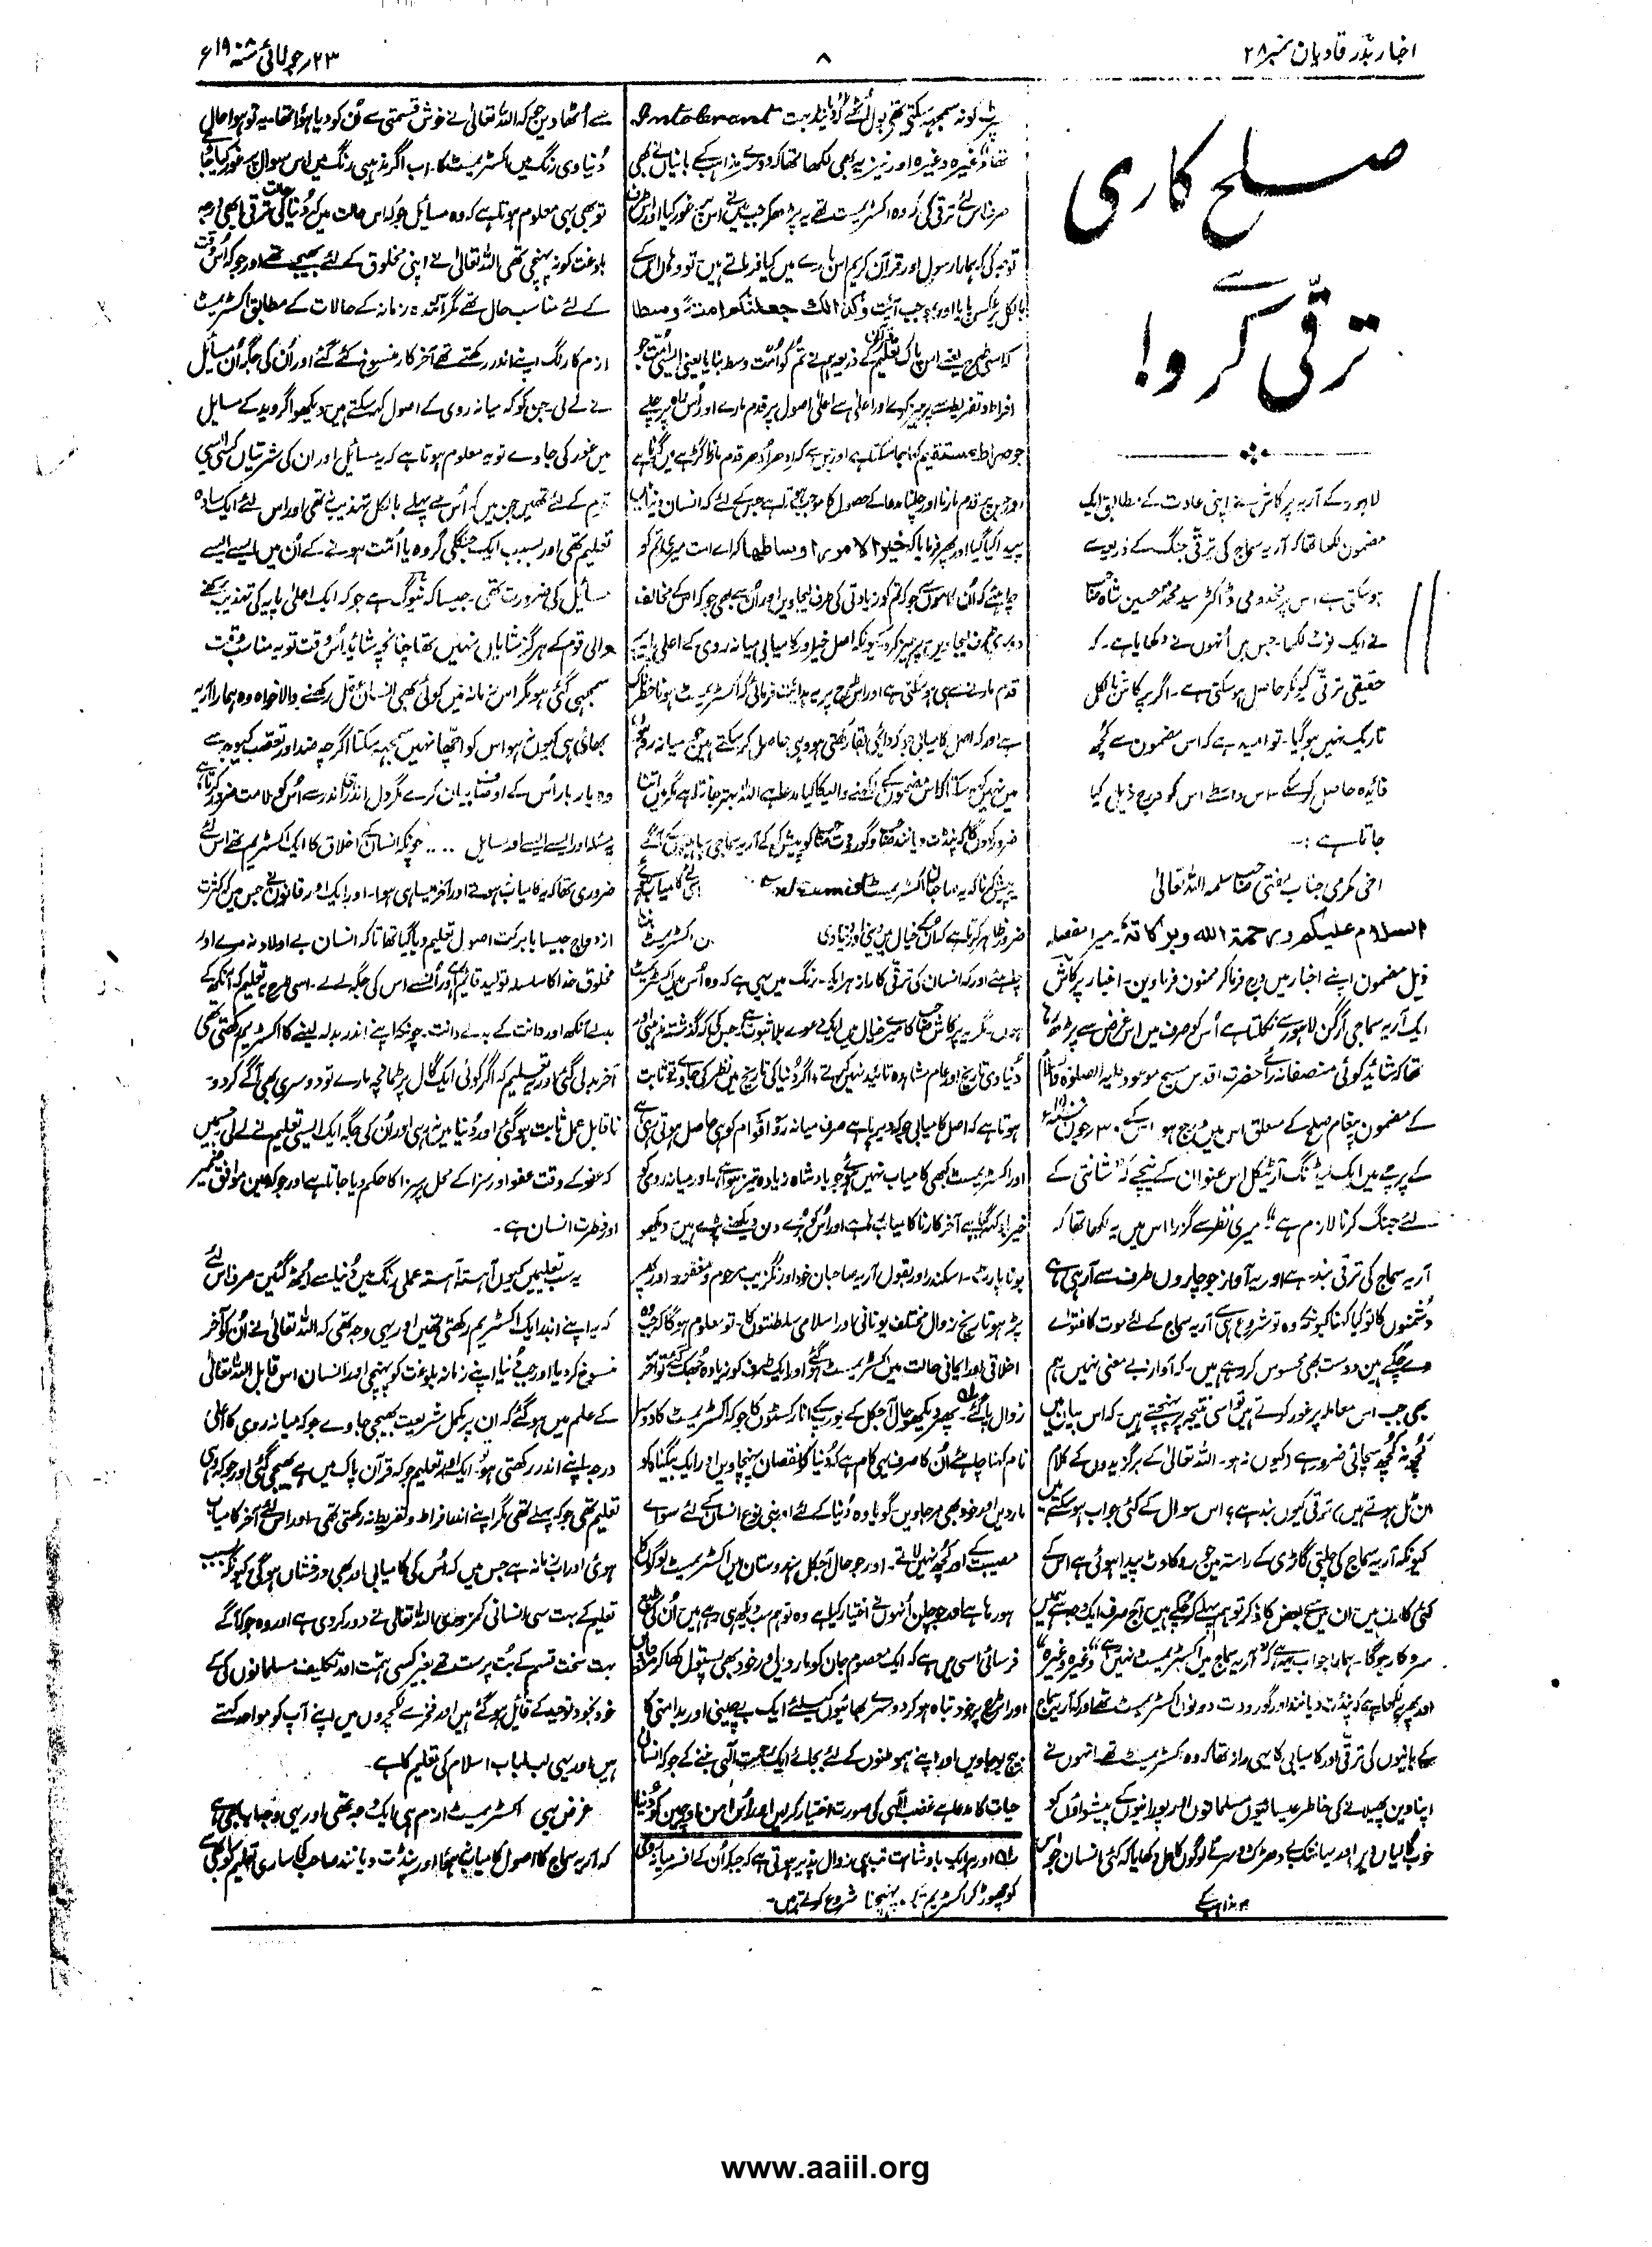 اخبار بدر قادیان نمبر ۲۸
۸
۲۳ جولائی ۱۹۰۸ء
صلح کاری
سے
ترقی کرو!
لاہور کے آریہ پرکاش نے اپنی عادت کے مطابق ایک
مضمون لکھا تھا کہ آریہ سماج کی ترقی جنگ کے ذریعہ سے
ہو سکتی ہے اس پر مخدومی ڈاکٹر سید محمد حسین شاہ صاحب
نے ایک نوٹ لکھا۔ جس میں اُنہوں نے دکھایا ہے۔ کہ
حقیقی ترقی کیونکر حاصل ہو سکتی ہے۔ اگر پرکاش بالکل
تاریک نہیں ہو گیا۔ تو امید ہے کہ اس مضمون سے کُچھ
فائدہ حاصل کر سکے اس واسطے اس کو درج ذیل کیا
جاتا ہے :۔
اخی مکرمی جناب مفتی صاحب سلمہ اللہ تعالیٰ
السلام علیکم ورحمۃ اللہ وبرکاتہ۔ میرا مفصلہ
ذیل مضمون اپنے اخبار میں درج فرما کر ممنون فرماویں۔ اخبار پرکاش
ایک آریہ سماجی آرگن لاہور سے نکلتا ہے اُس کو صرف میں اس غرض سے پڑھ رہا
تھا کہ شائد کوئی منصفانہ رائے حضرت اقدس مسیح موعود علیہ الصلوٰۃ والسلام
کے مضمون پیغام صلح کے متعلق اس میں درج ہو اس کے ۳۰ جون
کے پرچے میں ایک لیڈنگ آرٹیکل اس عنوان کے نیچے کہ "شانتی کے
لئے جنگ کرنا لازم ہے" میری نظر سے گزرا اس میں یہ لکھا تھا کہ
آریہ سماج کی ترقی بند ہے اور یہ آواز جو چاروں طرف سے آ رہی ہے
دُشمنوں کا تو کیا کہنا کیونکہ وہ تو شروع سے ہی آریہ سماج کے لئے موت کا فتوٰے
دے چکے ہیں دوست بھی محسوس کر رہے ہیں۔ کہ آواز بے معنی نہیں ہم
بھی جب اس معاملہ پر غور کرتے ہیں تو اسی نتیجہ پر پہنچتے ہیں کہ اس بیان میں
کُچھ نہ کُچھ سچائی ضرور ہے (کیوں نہ ہو۔ اللہ تعالیٰ کے برگزیدوں کے کلام
ان ٹل ہوتے ہیں) ترقی کیوں بند ہے؟ اس سوال کے کئی جواب ہو سکتے ہیں
کیونکہ آریہ سماج کی چلتی گاڑی کے راستہ میں جو رکاوٹ پیدا ہوئی ہے اس کے
کئی کارن ہیں ان میں سے بعض کا ذکر تو ہم پہلے کر چکے ہیں آج صرف ایک وجہ سے ہمیں
سروکار ہو گا۔ ہمارا جواب یہ ہے کہ "آریہ سماج میں اکسٹریمسٹ نہیں رہے" وغیرہ وغیرہ
اور پھر لکھا ہے کہ پنڈت دیانند اور گورودت دونوں اکسٹریمسٹ تھے اور کہ آریہ سماج
کے بانیوں کی ترقی اور کامیابی کا یہی راز تھا کہ وہ اکسٹریمسٹ تھے انہوں نے
اپنا دین پھیلانے کی خاطر عیسائیوں مسلمانوں اور پورانیوں کے پیشواؤں کو
خوب گالیاں دیں
پرشٹ کو نہ سمجھ سکتی تھی بول اُٹھے کہ دیانند بہت Intolerant
تھا وغیرہ وغیرہ اور نیز یہ بھی لکھا تھا کہ دوسرے مذاہب کے بانیاں نے بھی
صرف اس لئے ترقی کی کہ وہ اکسٹریمسٹ تھے یہ پڑھ کر جب میں نے اس پر غور کیا اور اس طرف
توجہ کی کہ ہمارا رسول اور قرآن کریم اس بارے میں کیا فرماتے ہیں تو وہاں اس کے
بالکل برعکس پایا اور جب آیت وکذالک جعلنکم امۃ وسطا
افراط و تفریط سے پرہیز کرے اور اعلیٰ سے اعلیٰ اصول پر قدم مارے اور اُس راہ پر چلے
جو صراط مستقیم کہا جا سکتا ہے
پیدا کیا گیا اور پھر فرمایا کہ خیر الامور اوساطہا کہ اے امت میری تم کو
چاہئے کہ اُن کاموں سے جو کہ تم کو زیادتی کی طرف لیجاویں اور اُن سے بھی جو کہ اس کے مخالف
دوسری طرف لیجاویں پرہیز کرو۔ کیونکہ اصل خیر اور کامیابی میانہ روی کے اعلیٰ پایہ پر
قدم مارنے سے ہی ہو سکتی ہے
میں نہیں کہہ سکتا کہ اس مضمون کے لکھنے والے کا کیا مدعا ہے اللہ بہتر جانتا ہے مگر میں اتنا
ضرور کہوں گا کہ پنڈت دیانند صاحب و گورودت صاحب کو پیش کر کے آریہ سماجی پارٹیوں کے آگے
یہ پیش کرنا کہ یہ مہاجنان اکسٹریمسٹ Extremist تھے
ضرور ظاہر کرتا ہے کہ اُس کے خیال میں دینی اور دنیاوی
چاہئے اور کہ انسان کی ترقی کا راز ہر ایک رنگ میں یہی ہے کہ وہ اُس میں اکسٹریمسٹ
ہوں مگر یہ پرکاش صاحب کا میرے خیال میں ایک دعوے بلا ثبوت ہے جس کی کہ گذشتہ مذہبی اور
دُنیاوی تاریخ اور عام مشاہدہ تائید نہیں کرتے۔ اگر دُنیا کی تاریخ میں نظر کی جاوے تو ثابت
ہوتا ہے کہ اصل کامیابی جو کہ دیرپا ہے صرف میانہ رَو اقوام کو ہی حاصل ہوتی رہی ہے
اور اکسٹریمسٹ کبھی کامیاب نہیں ہوئے جو بادشاہ زیادہ تیز ہوا ہے، اور میانہ روی کو
خیرباد کہہ گیا ہے آخر کار ناکامیاب رہا ہے اور اُس کو بُرے دن دیکھنے پڑے ہیں دیکھو
بونا پارٹ۔ اسکندر اور بقول آریہ صاحبان خود اورنگزیب مرحوم و مغفور۔ اور پھر
پڑھو تاریخ زوال مختلف یونانی اور اسلامی سلطنتوں کا۔ تو معلوم ہوگا کہ جب وہ
اخلاقی اور ایمانی حالت میں اکسٹریمسٹ ہو گئے اور ایک طرف کو زیادہ جُھک گئے تو آخر
زوال پا گئے۔ پھر دیکھو حال آجکل کے یورپ کے انارکسٹوں کا جو کہ اکسٹریمسٹ کا دوسرا
نام کہنا چاہئے اُن کا صرف یہی کام ہے کہ دُنیا کو نقصان پہنچاویں اور ایک بیگناہ کو
مار دیں اور خود بھی مر جاویں۔ گویا وہ دُنیا کے لئے اور بنی نوع انسان کے لئے سوائے
مصیبت کے اور کُچھ نہیں لاتے۔ اور جو حال آجکل ہندوستان میں اکسٹریمسٹ لوگوں کا
ہو رہا ہے اور جو چلن اُنہوں نے اختیار کیا ہے وہ تو ہم سب دیکھ ہی رہے ہیں
اور اس طرح پر خود تباہ ہو کر دوسرے بھائیوں کے لئے ایک بے چینی اور بدامنی کا
بیج بو جاویں اور اپنے ہموطنوں کے لئے بجائے ایک رحمت الٰہی بننے کے جو کہ انسانی
حیات کا مدعا ہے غضب الٰہی کی صورت اختیار کر لیں
اور ہر ایک بادشاہت تب ہی زوال پذیر ہوتی ہے کہ جبکہ اُن کے افسر میانہ روی
کو چھوڑ کر اکسٹریم تک پہنچنا شروع کرتے ہیں۔
سے اُٹھا دیں جو کہ اللہ تعالیٰ نے خوش قسمتی سے اُن کو دیا ہوا تھا یہ تو ہوا حال
دُنیاوی رنگ میں اکسٹریمسٹ کا۔ اب اگر مذہبی رنگ میں اس سوال پر غور کیا جائے
تو بھی یہی معلوم ہوتا ہے کہ وہ مسائیل جو کہ اس حالت میں کہ دُنیا کی ترقی ابھی درجہ
بلوغت کو نہ پہنچی تھی اللہ تعالیٰ نے اپنی مخلوق کے لئے بھیجے تھے اور جو کہ اُس وقت
کے لئے مناسب حال تھے مگر آئندہ زمانہ کے حالات کے مطابق اکسٹریمسٹ
ازم کا رنگ اپنے اندر رکھتے تھے آخر کار منسوخ کئے گئے اور اُن کی جگہ اُن مسائیل
نے لے لی۔ جن کو کہ میانہ روی کے اصول کہہ سکتے ہیں دیکھو اگر وید کے مسایل
میں غور کی جاوے تو یہ معلوم ہوتا ہے کہ یہ مسائیل اور ان کی شرتیاں کسی ایسی
قوم کے لئے تھیں جن میں کہ اُس سے پہلے بالکل تہذیب نہ تھی اور اس لئے ایک سادہ
تعلیم تھی اور بسبب ایک جنگلی گروہ یا اُمت ہونے کے اُن میں ایسے ایسے
مسائیل کی ضرورت تھی۔ جیسا کہ نیوگ ہے جو کہ ایک اعلیٰ پایہ کی تہذیب رکھنے
والی قوم کے ہرگز شایاں نہیں تھا چنانچہ شائد اُس وقت تو یہ مناسب وقت
سمجھی گئی ہو مگر اس زمانہ میں کوئی بھی انسان عقل رکھنے والا خواہ وہ ہمارا آریہ
بھائی ہی کیوں نہ ہو اس کو اچھا نہیں سمجھ سکتا اگرچہ ضد اور تعصب کیوجہ سے
وہ بار بار اُس کے اوصاف بیان کرے مگر دل اندر ہی اندر سے اُس کو ملامت ضرور کرتا ہے
یہ مسئلہ اور ایسے ایسے اور مسایل .... چونکہ انسان کے اخلاق کا ایک اکسٹریم تھے اس لئے
ضروری تھا کہ یہ کامیاب نہ ہوتے اور آخر میں ایسا ہی ہوا۔ اور ایک اور قانون نے جس میں کہ کثرت
ازدواج جیسا بابرکت اصول تعلیم دیا گیا تھا تاکہ انسان بے اولاد نہ مرے اور
مخلوق خدا کا سلسلہ تولید قائم رہے اُس نے اس کی جگہ لے لی۔ اسی طرح یہ تعلیم کہ آنکھ کے
بدلے آنکھ اور دانت کے بدلے دانت۔ چونکہ اپنے اندر بدلہ لینے کا اکسٹریم رکھتی تھی
آخر بدلی گئی اور یہ تعلیم کہ اگر کوئی ایک گال پر طمانچہ مارے تو دوسری بھی آگے کر دو
ناقابل عمل ثابت ہو گئی اور دُنیا میں نہ رہی اور اُن کی جگہ ایک ایسی تعلیم نے لے لی جس میں
کہ عفو کے وقت عفو اور سزا کے محل پر سزا کا حکم دیا جاتا ہے اور جو کہ عین موافق ضمیر
اور فطرت انسان ہے۔
یہ سب تعلیمیں کیوں آہستہ آہستہ عملی رنگ میں دُنیا سے اُٹھ گئیں۔ صرف اس لئے
کہ یہ اپنے اندر ایک اکسٹریم رکھتی تھیں اور یہی وجہ تھی کہ اللہ تعالیٰ نے اُن کو آخر
منسوخ کر دیا اور جب دُنیا اپنے زمانہ بلوغت کو پہنچی اور انسان اس قابل اللہ تعالیٰ
کے علم میں ہو گئے کہ ان پر مکمل شریعت بھیجی جاوے جو کہ میانہ روی کا اعلیٰ
درجہ اپنے اندر رکھتی ہو، ایک اور تعلیم جو کہ قرآن پاک میں ہے بھیجی گئی اور جو کہ وہی
تعلیم تھی جو کہ پہلے تھی مگر اپنے اندر افراط و تفریط نہ رکھتی تھی۔ اور اس لئے آخر کامیاب
ہوئی اور اب زمانہ ہے جس میں کہ اُس کی کامیابی اور بھی درخشاں ہو گی کیونکہ بسبب
تعلیم کے بہت سی انسانی کمزوریاں اللہ تعالیٰ نے دور کر دی ہے اور وہ جو کہ آگے
بہت سخت قسم کے بُت پرست تھے بغیر کسی محنت اور تکلیف مسلمانوں کی کے
خود بخود توحید کے قائیل ہو گئے ہیں اور فخر سے لکچروں میں اپنے آپ کو مواحد کہتے
ہیں اور یہی لب لباب اسلام کی تعلیم کا ہے۔
غرض یہی اکسٹریمسٹ ازم ہی ایک وجہ تھی اور یہی وجہ اب بھی ہے
کہ آریہ سماج کا اصول کامیاب نہ ہوا اور پنڈت دیانند صاحب کی ساری تعلیم کو
www.aaiil.org